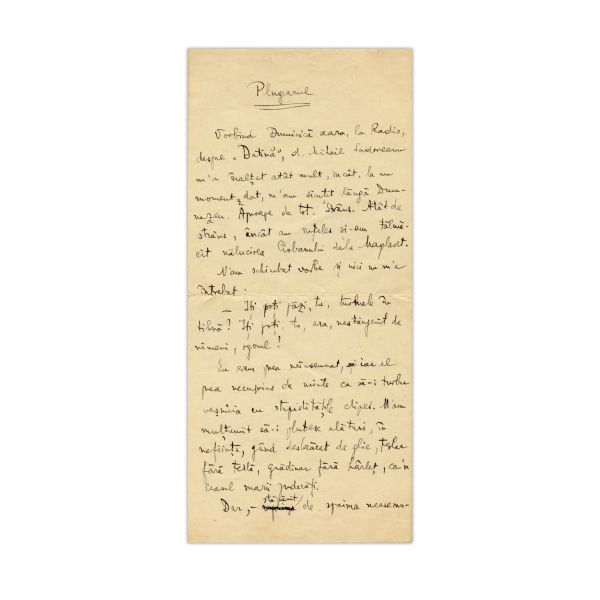 Plugarul
Vorbind Duminică seara, la Radio,
despre „Datină”, d. Mihail Sadoveanu
m'a înălțat atât mult, încât, la un
moment dat, m'am simțit lângă Dum-
nezeu. Aproape de tot. Strâns. Atât de
strâns, încât am înțeles și-am tălmă-
cit nălucirea Ciobanului dela Maglavit.
N'am schimbat vorba și nici nu m'a
întrebat:
— Iți poți păzi, tu, turmele în
tihnă? Iți poți, tu, ara, nestânjenit de
nimeni, ogorul?
Eu eram prea neînsemnat, iar el
prea necuprins de minte ca să-i turbur
veșnicia cu stupiditățile clipei. M'am
mulțumit să-i plutesc alături, în
neființă, gând desbrăcat de glie,
fără teslă, grădinar fără hârleț, ca'n
ceasul marii judecăți.
Dar, - stăpânit de spaima neasemu-